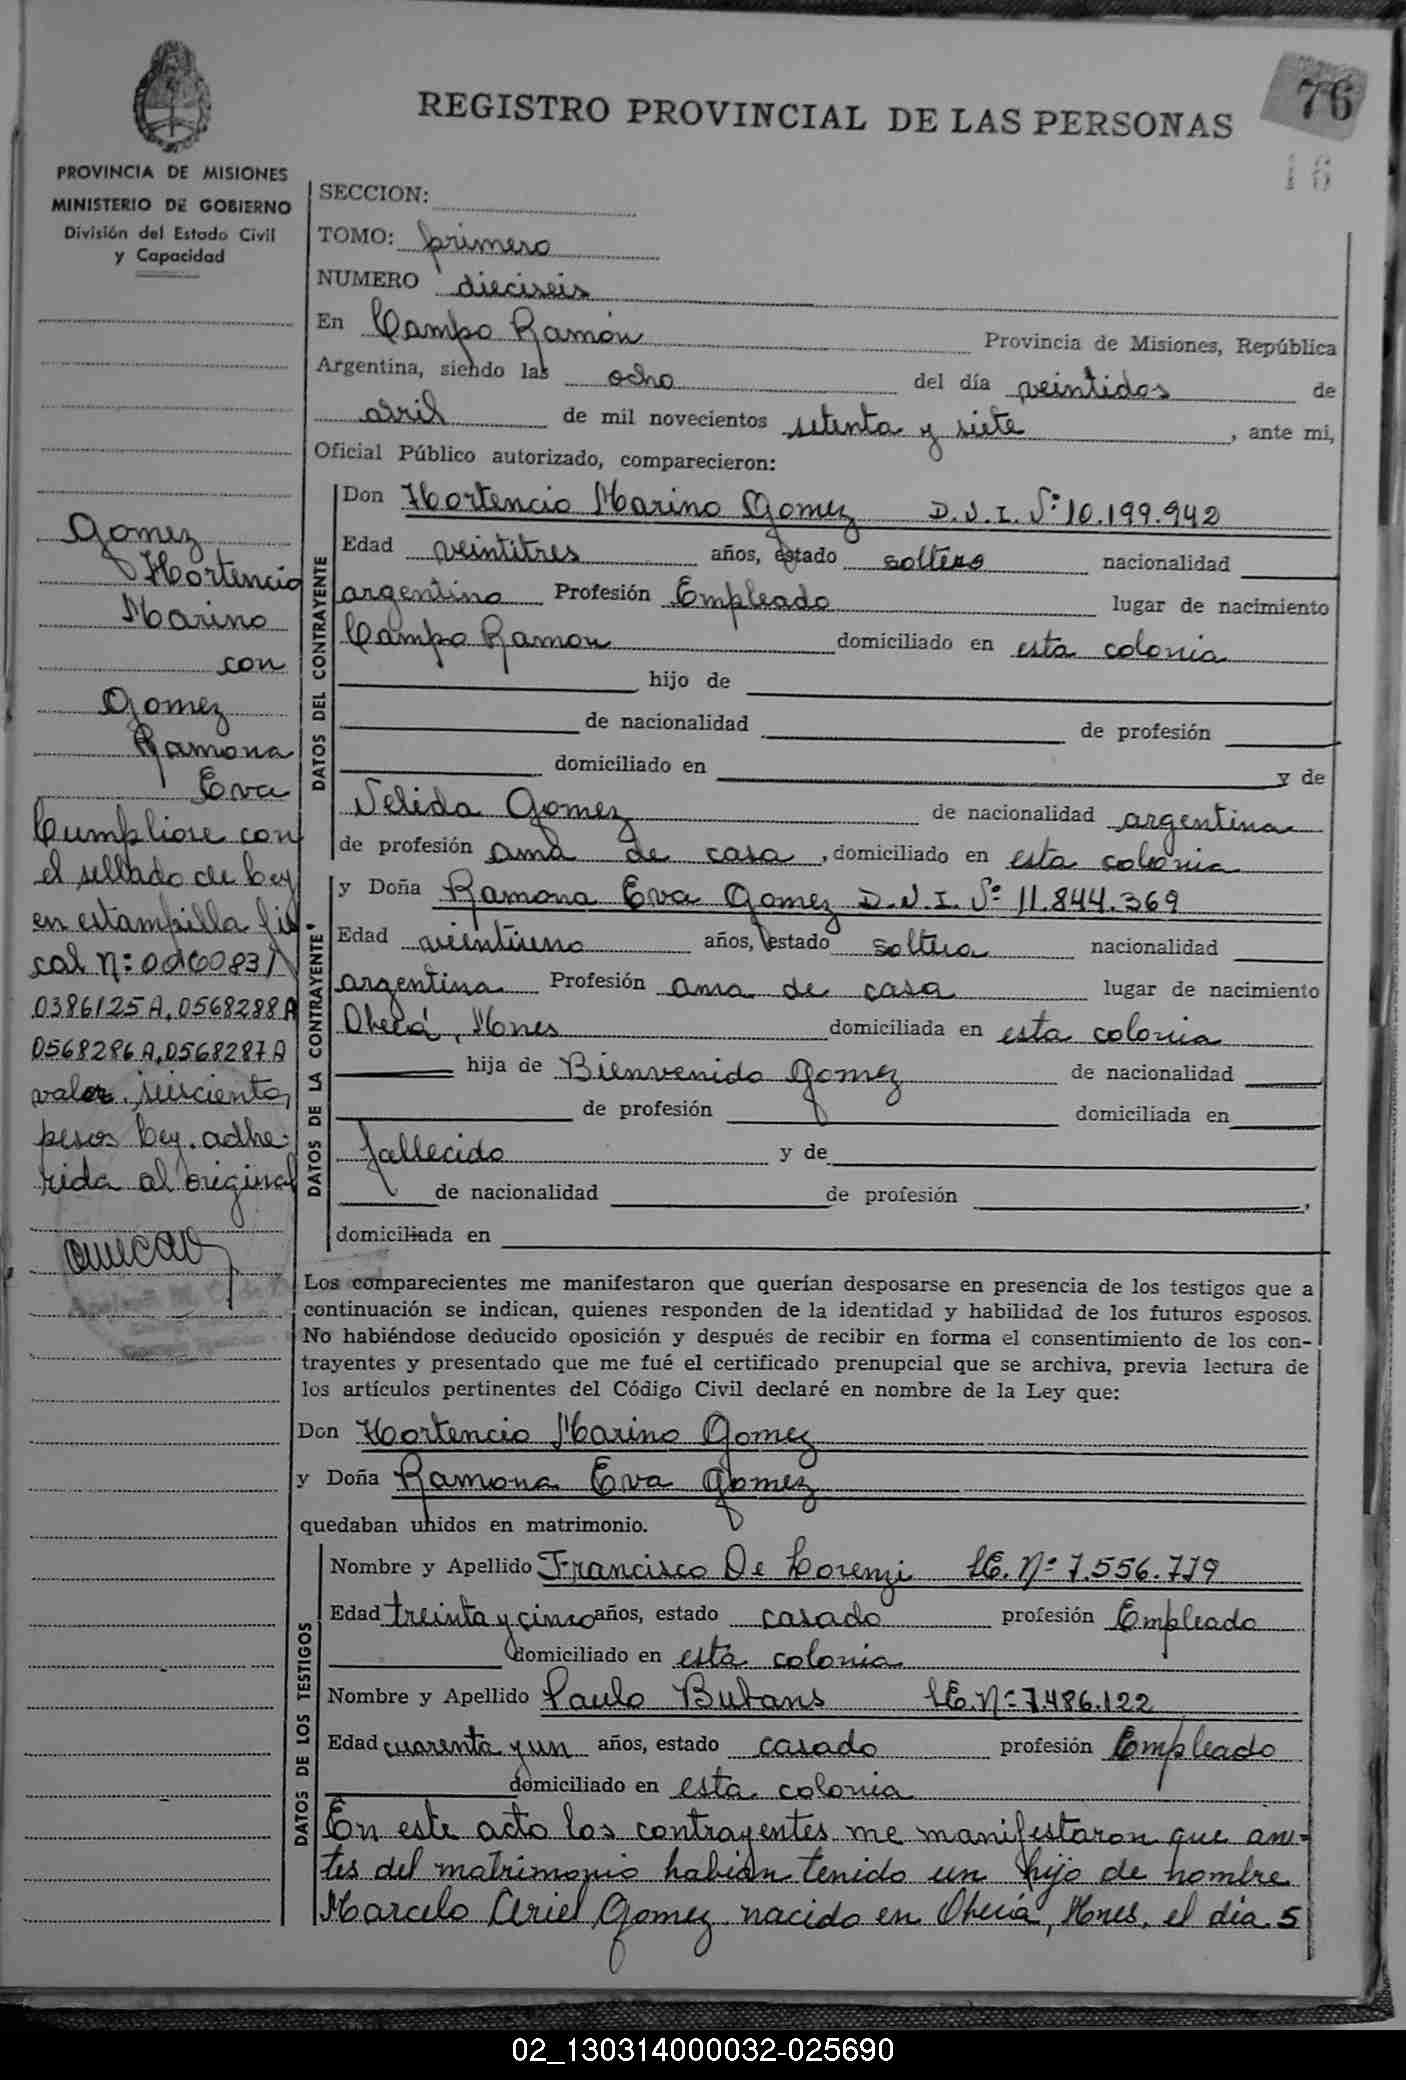 76
REGISTRO PROVINCIAL DE LAS PERSONAS
16
PROVINCIA DE MISIONES
MINISTERIO DE GOBIERNO
División del Estado Civil
y Capacidad
Gomez
Hortencio
Marino
con
Gomez
Ramona
Eva
Cumpliose con
el sellado de Ley
en estampilla fis
cal
0386125A, 0568288A
0568286A, 0568287A
valor
pesos Ley. adhe-
rida al original
SECCION:
TOMO: primero
NUMERO dieciseis
En Campo Ramón Provincia de Misiones, República
Argentina, siendo las ocho del día veintidos de
abril de mil novecientos setenta y siete, ante mi,
Oficial Público autorizado, comparecieron:
DATOS DEL CONTRAYENTE
Don Hortencio Marino Gomez D.N.I. Nº 10.199.942
Edad veintitres años, estado soltero nacionalidad
argentino Profesión Empleado lugar de nacimiento
Campo Ramon domiciliado en esta colonia
hijo de
de nacionalidad de profesión
domiciliado en y de
Nelida Gomez de nacionalidad argentina
de profesión ama de casa, domiciliado en esta colonia
DATOS DE LA CONTRAYENTE
y Doña Ramona Eva Gomez D.N.I. Nº 11.844.369
Edad veintiuno años, estado soltera nacionalidad
argentina Profesión ama de casa lugar de nacimiento
Oberá, Mnes domiciliada en esta colonia
hija de Bienvenido Gomez de nacionalidad
de profesión domiciliada en
fallecido y de
de nacionalidad de profesión ,
domiciliada en
Los comparecientes me manifestaron que querían desposarse en presencia de los testigos que a
continuación se indican, quienes responden de la identidad y habilidad de los futuros esposos.
No habiéndose deducido oposición y después de recibir en forma el consentimiento de los con-
trayentes y presentado que me fué el certificado prenupcial que se archiva, previa lectura de
los artículos pertinentes del Código Civil declaré en nombre de la Ley que:
Don Hortencio Marino Gomez
y Doña Ramona Eva Gomez
quedaban unidos en matrimonio.
DATOS DE LOS TESTIGOS
Nombre y Apellido Francisco De Lorenzi LE. Nº 7.556.719
Edad treinta y cinco años, estado casado profesión Empleado
domiciliado en esta colonia
Nombre y Apellido Paulo Butans LE. Nº 7.486.122
Edad cuarenta y un años, estado casado profesión Empleado
domiciliado en esta colonia
En este acto los contrayentes me manifestaron que an-
tes del matrimonio habian tenido un hijo de nombre
Marcelo Ariel Gomez nacido en Oberá, Mnes, el dia 5
02_130314000032-025690